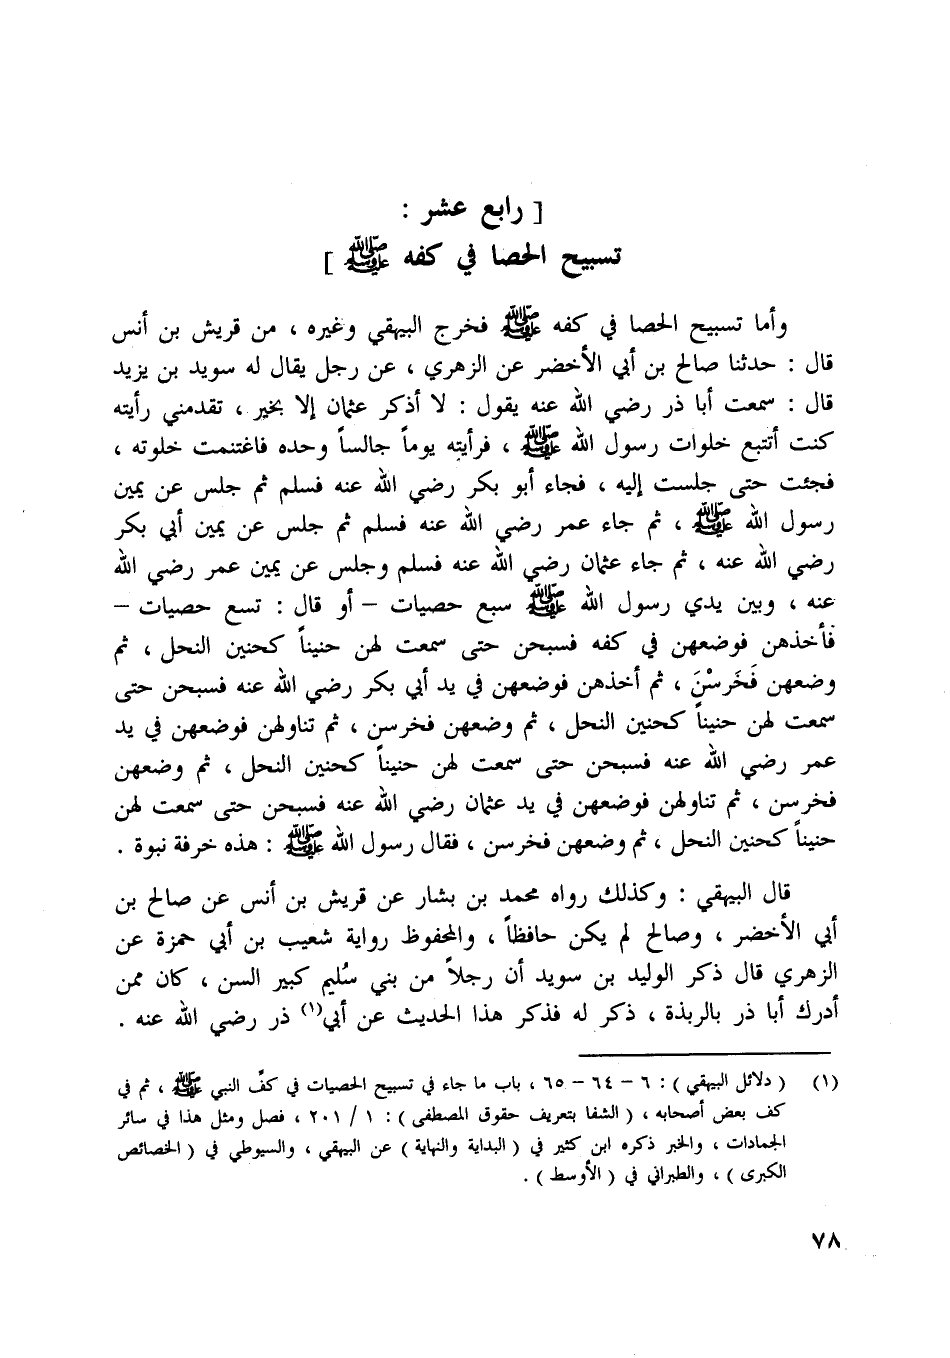 [ رابع عشر :
تسبيح الحصا في كفه ﷺ ]
وأما تسبيح الحصا في كفه ﷺ فخرج البيهقي وغيره ، من قريش بن أنس
قال : حدثنا صالح بن أبي الأخضر عن الزهري ، عن رجل يقال له سويد بن يزيد
قال : سمعت أبا ذر رضي الله عنه يقول : لا أذكر عثمان إلا بخير ، تقدمني رأيته
كنت أتتبع خلوات رسول الله ﷺ ، فرأيته يوماً جالساً وحده فاغتنمت خلوته ،
فجئت حتى جلست إليه ، فجاء أبو بكر رضي الله عنه فسلم ثم جلس عن يمين
رسول الله ﷺ ، ثم جاء عمر رضي الله عنه فسلم ثم جلس عن يمين أبي بكر
رضي الله عنه ، ثم جاء عثمان رضي الله عنه فسلم وجلس عن يمين عمر رضي الله
عنه ، وبين يدي رسول الله ﷺ سبع حصيات – أو قال : تسع حصيات –
فأخذهن فوضعهن في كفه فسبحن حتى سمعت لهن حنيناً كحنين النحل ، ثم
وضعهن فَخَرسْنَ ، ثم أخذهن فوضعهن في يد أبي بكر رضي الله عنه فسبحن حتى
سمعت لهن حنيناً كحنين النحل ، ثم وضعهن فخرسن ، ثم تناولهن فوضعهن في يد
عمر رضي الله عنه فسبحن حتى سمعت لهن حنيناً كحنين النحل ، ثم وضعهن
فخرسن ، ثم تناولهن فوضعهن في يد عثمان رضي الله عنه فسبحن حتى سمعت لهن
حنيناً كحنين النحل ، ثم وضعهن فخرسن ، فقال رسول الله ﷺ : هذه خرفة نبوة .
قال البيهقي : وكذلك رواه محمد بن بشار عن قريش بن أنس عن صالح بن
أبي الأخضر ، وصالح لم يكن حافظاً ، والمحفوظ رواية شعيب بن أبي حمزة عن
الزهري قال ذكر الوليد بن سويد أن رجلاً من بني سُليم كبير السن ، كان ممن
أدرك أبا ذر بالربذة ، ذكر له فذكر هذا الحديث عن أبي(١) ذر رضي الله عنه .
(١) ( دلائل البيهقي ) : ٦ – ٦٤ – ٦٥ ، باب ما جاء في تسبيح الحصيات في كفِّ النبي ﷺ ، ثم في
كف بعض أصحابه ، ( الشفا بتعريف حقوق المصطفى ) : ١ / ٢٠١ ، فصل ومثل هذا في سائر
الجمادات ، والخبر ذكره ابن كثير في ( البداية والنهاية ) عن البيهقي ، والسيوطي في ( الخصائص
الكبرى ) ، والطبراني في ( الأوسط ) .
٧٨